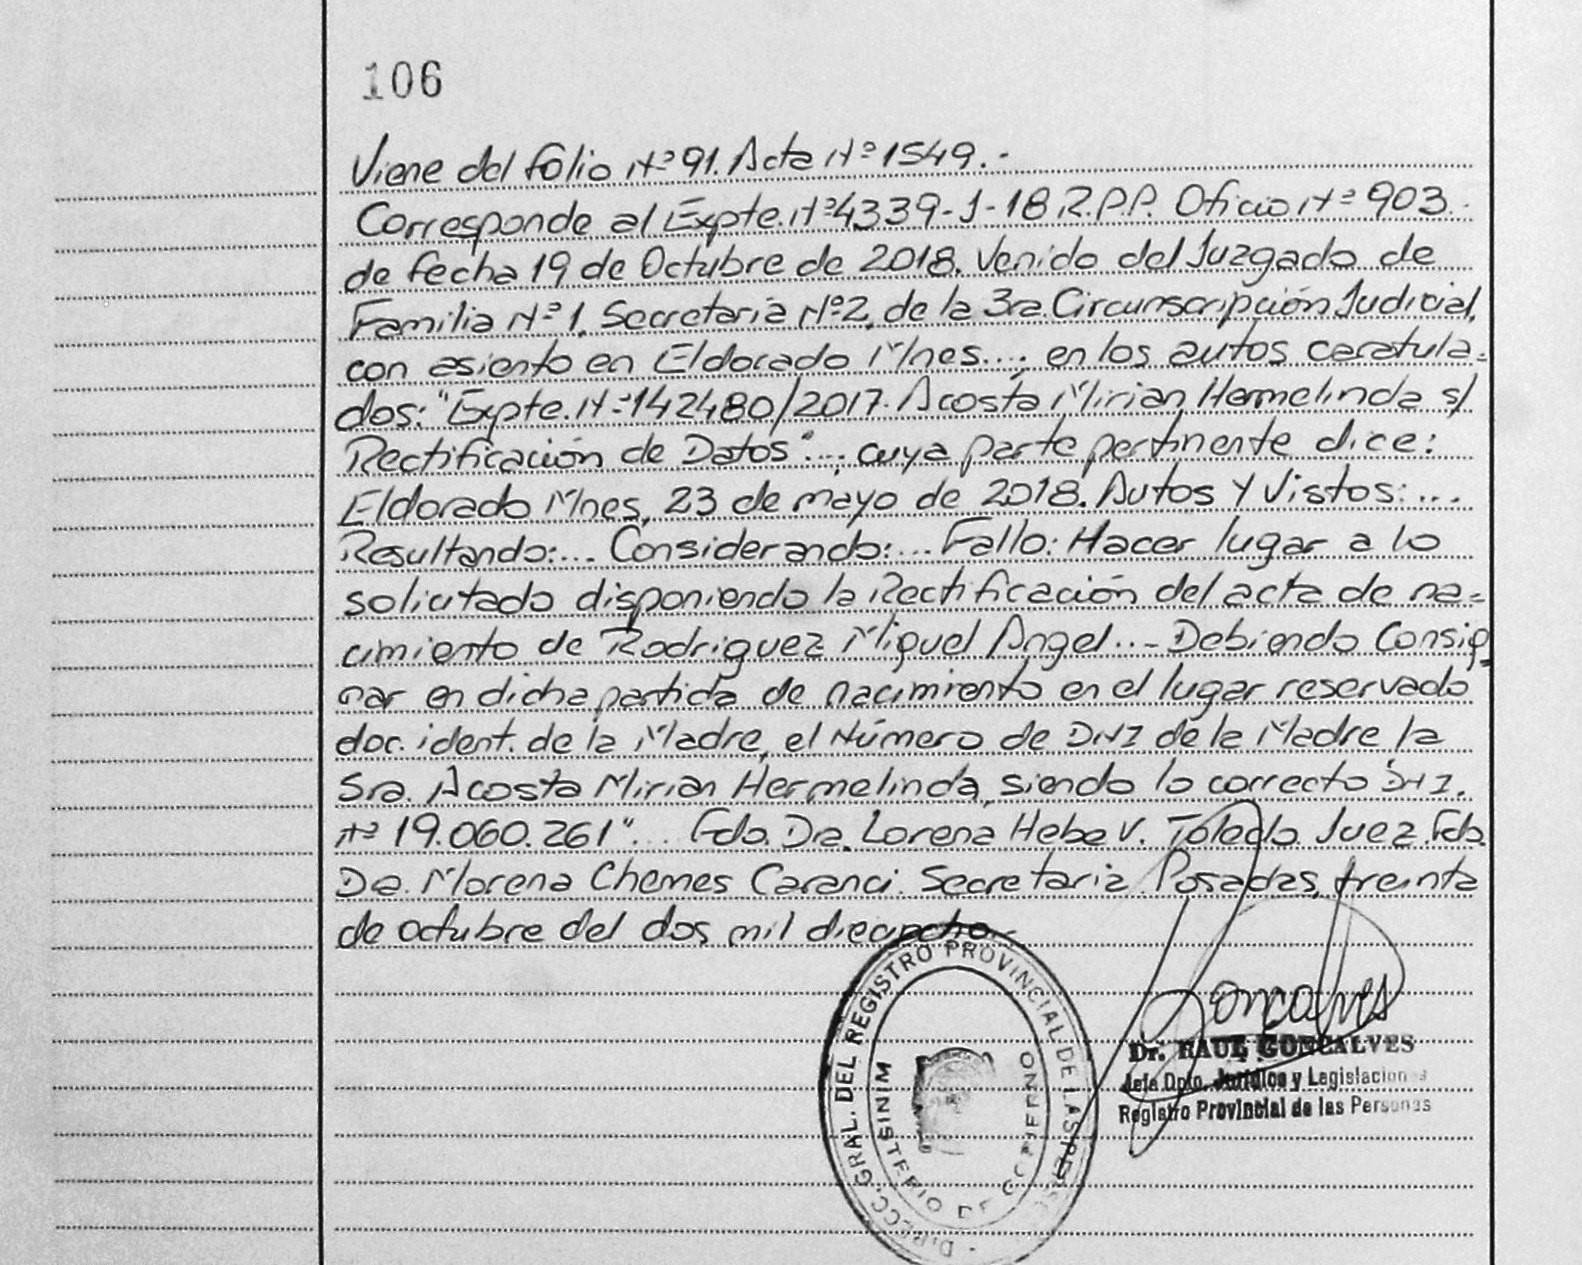 106
Viene del folio Nº 91. Acta Nº 1549.-
Corresponde al Expte. Nº 4339-J-18 R.P.P. Oficio Nº 903.-
de fecha 19 de Octubre de 2018. Venido del Juzgado de
Familia Nº 1, Secretaría Nº 2, de la 3ra. Circunscripción Judicial,
con asiento en Eldorado Mnes...; en los autos caratula=
dos: "Expte. Nº 142480/2017. Acosta Mirian Hermelinda s/
Rectificación de Datos"...; cuya parte pertinente dice:
Eldorado Mnes, 23 de mayo de 2018. Autos Y Vistos:...
Resultando:... Considerando:... Fallo: Hacer lugar a lo
solicitado disponiendo la Rectificación del acta de na=
cimiento de Rodriguez Miguel Angel...- Debiendo Consig=
nar en dicha partida de nacimiento en el lugar reservado
doc. ident. de la Madre, el Número de DNI de la Madre la
Sra. Acosta Mirian Hermelinda, siendo lo correcto DNI.
Nº 19.060.261"... Fdo. Dra. Lorena Hebe V. Toledo. Juez. Fdo.
Da. Morena Chemes Caranci. Secretaria. Posadas, treinta
de octubre del dos mil dieciocho.-
DIRECC. GRAL. DEL REGISTRO PROVINCIAL DE LAS PERS
MINISTERIO DE GOBIERNO
Goncalves
Dr. RAUL GONCALVES
Jefe Dpto. Jurídico y Legislaciones
Registro Provincial de las Personas